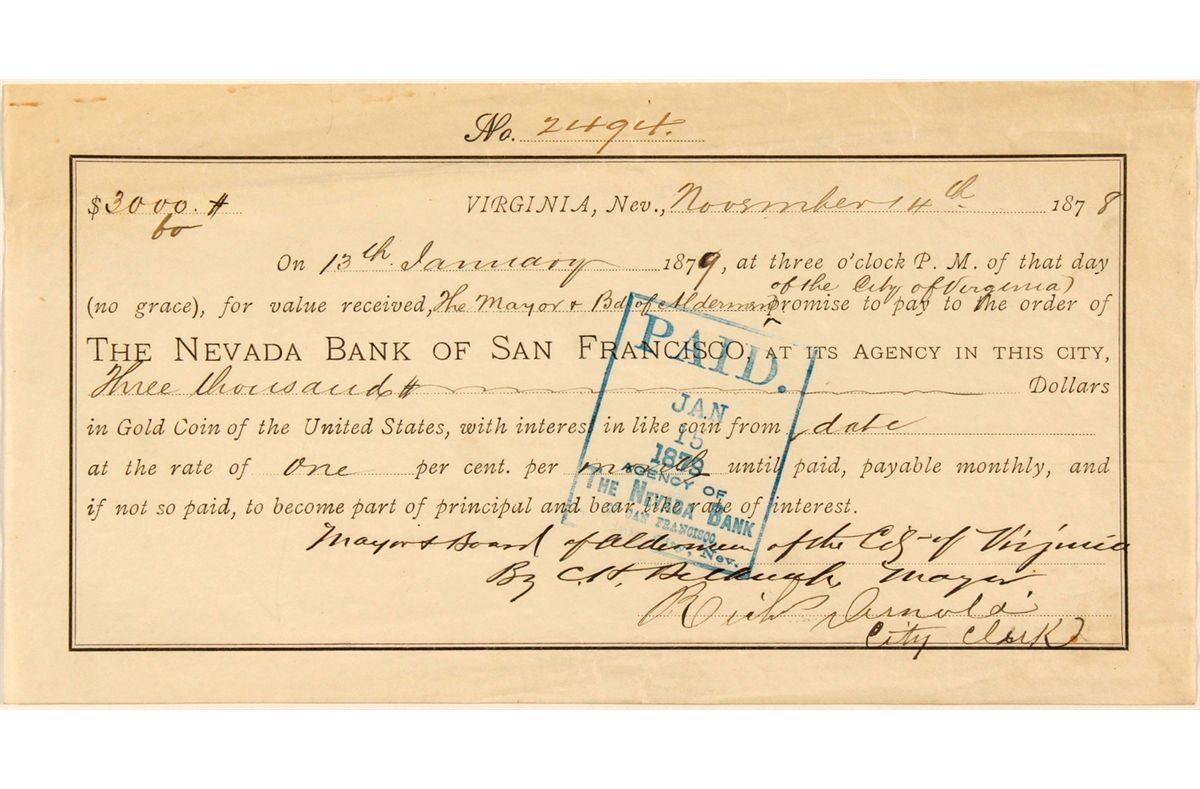 No. 2494.
$3000.#
60
VIRGINIA, Nev., November 14th 1878
On 13th January 1879, at three o'clock P. M. of that day
of the City of Virginia)
(no grace), for value received, The Mayor & Bd of Aldermen promise to pay to the order of
THE NEVADA BANK OF SAN FRANCISCO, AT ITS AGENCY IN THIS CITY,
Three thousand # Dollars
in Gold Coin of the United States, with interest in like coin from date
at the rate of one per cent. per month until paid, payable monthly, and
if not so paid, to become part of principal and bear like rate of interest.
Mayor & Board of Aldermen of the City of Virginia
By C.H. Belknap Mayor
Rich Arnold
City Clerk
PAID.
JAN
15
1879
AGENCY OF
THE NEVADA BANK
SAN FRANCISCO,
Nev.